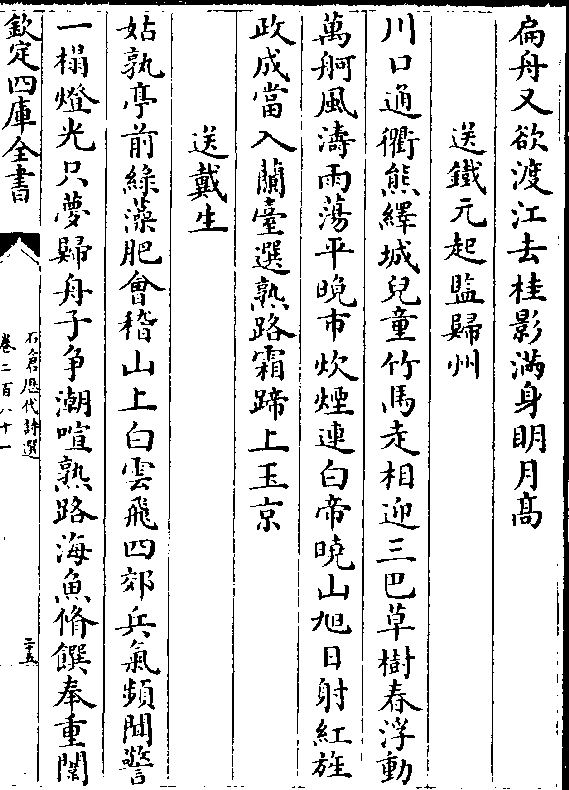 扁舟又欲渡江去桂影滿身明月髙
送鐵元起監歸州
川口通衢熊繹城兒童竹馬走相迎三巴草樹春浮動
萬舸風濤雨蕩平晚市炊煙連白帝曉山旭日射紅旌
政成當入蘭臺選熟路霜蹄上玉京
送戴生
姑孰亭前綠藻肥會稽山上白雲飛四郊兵氣頻聞警
一榻燈光只夢歸舟子争潮喧熟路海魚脩饌奉重闈
欽定四庫全書
石倉歷代詩選
卷二百八十一
二十五